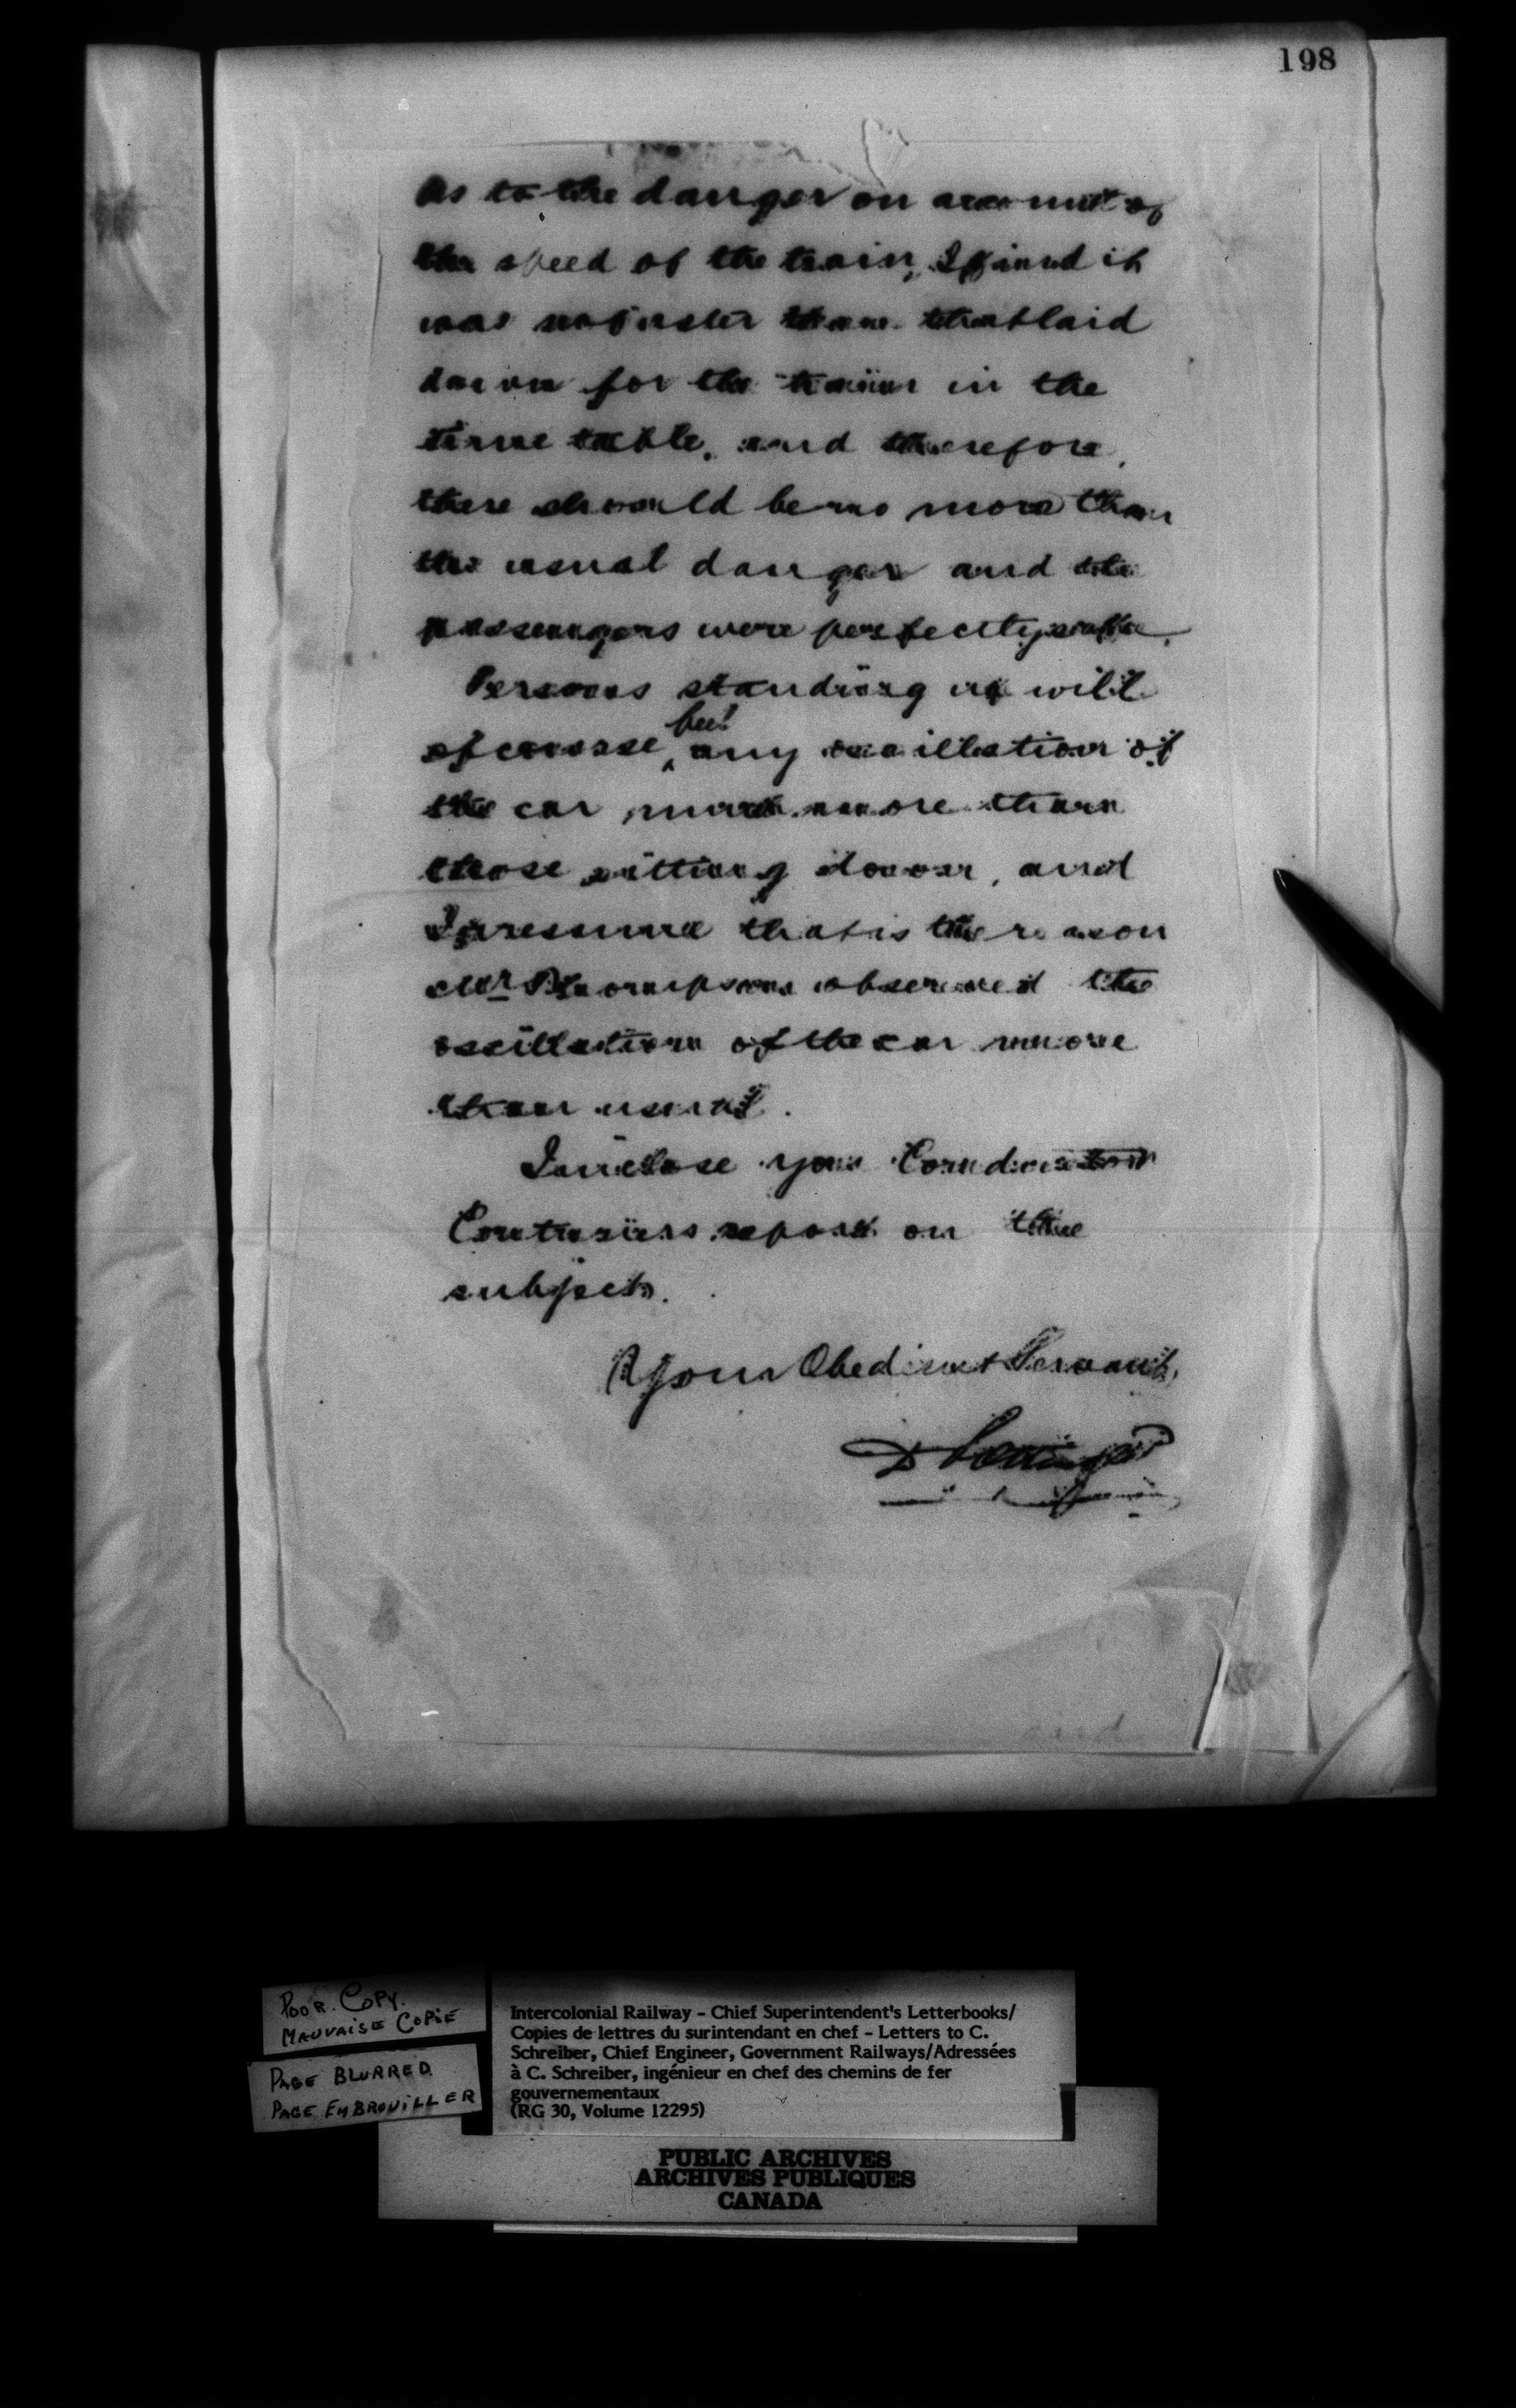 198
As to the danger on account of
the speed of the train, I find it
was no faster than that laid
down for the train in the
time table, and therefore,
there should be no more than
the usual danger and the
passengers were perfectly safe.
Persons standing up will
feel
of course, any oscillation of
the car much more than
those sitting down, and
I presume that is the reason
Mr Thompson observed the
oscillation of the car more
than usual.
I inclose you Conductor
report on the
subject.
Your Obedient Servant,
D Pottinger
POOR COPY.
MAUVAISE COPIE
PAGE BLURRED
PAGE EMBROUILLER
Intercolonial Railway - Chief Superintendent's Letterbooks/
Copies de lettres du surintendant en chef - Letters to C.
Schreiber, Chief Engineer, Government Railways/Adressées
à C. Schreiber, ingénieur en chef des chemins de fer
gouvernementaux
(RG 30, Volume 12295)
PUBLIC ARCHIVES
ARCHIVES PUBLIQUES
CANADA